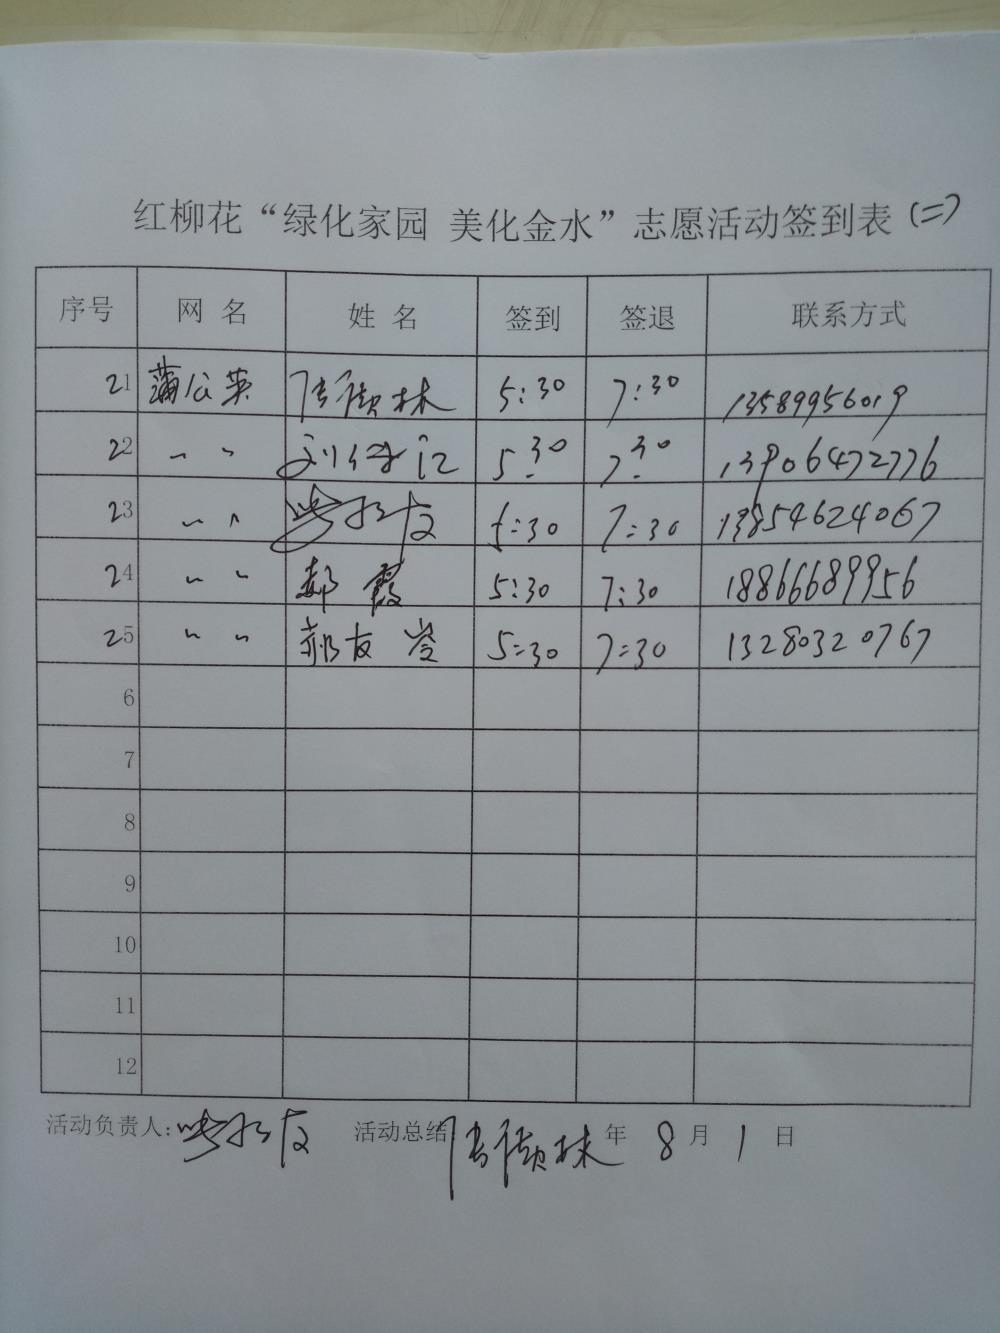 红柳花“绿化家园 美化金水”志愿活动签到表(二)
序号 网名 姓名 签到 签退 联系方式
21 蒲公英 林 5:30 7:30 13589956019
22 〃 刘 江 5:30 7:30 13906472776
23 〃 友 5:30 7:30 13854624067
24 〃 郝霞 5:30 7:30 18866689956
25 〃 郝友岺 5:30 7:30 13280320767
6
7
8
9
10
11
12
活动负责人: 友 活动总结: 林 年 8 月 1 日